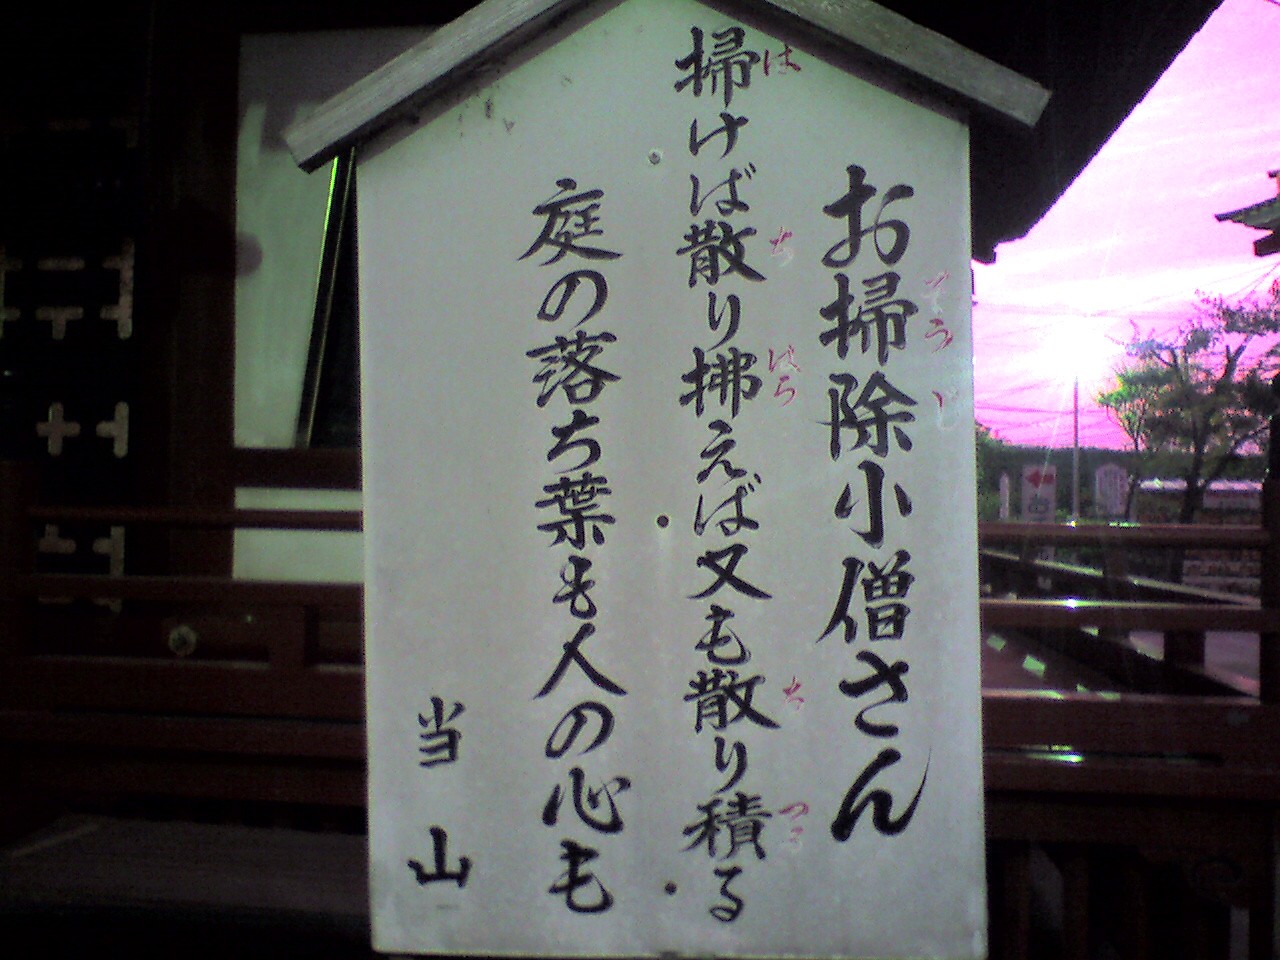 お掃除小僧さん
そうじ
掃けば散り拂えば又も散り積る
は
ち
はら
ち
つも
庭の落ち葉も人の心も
当山